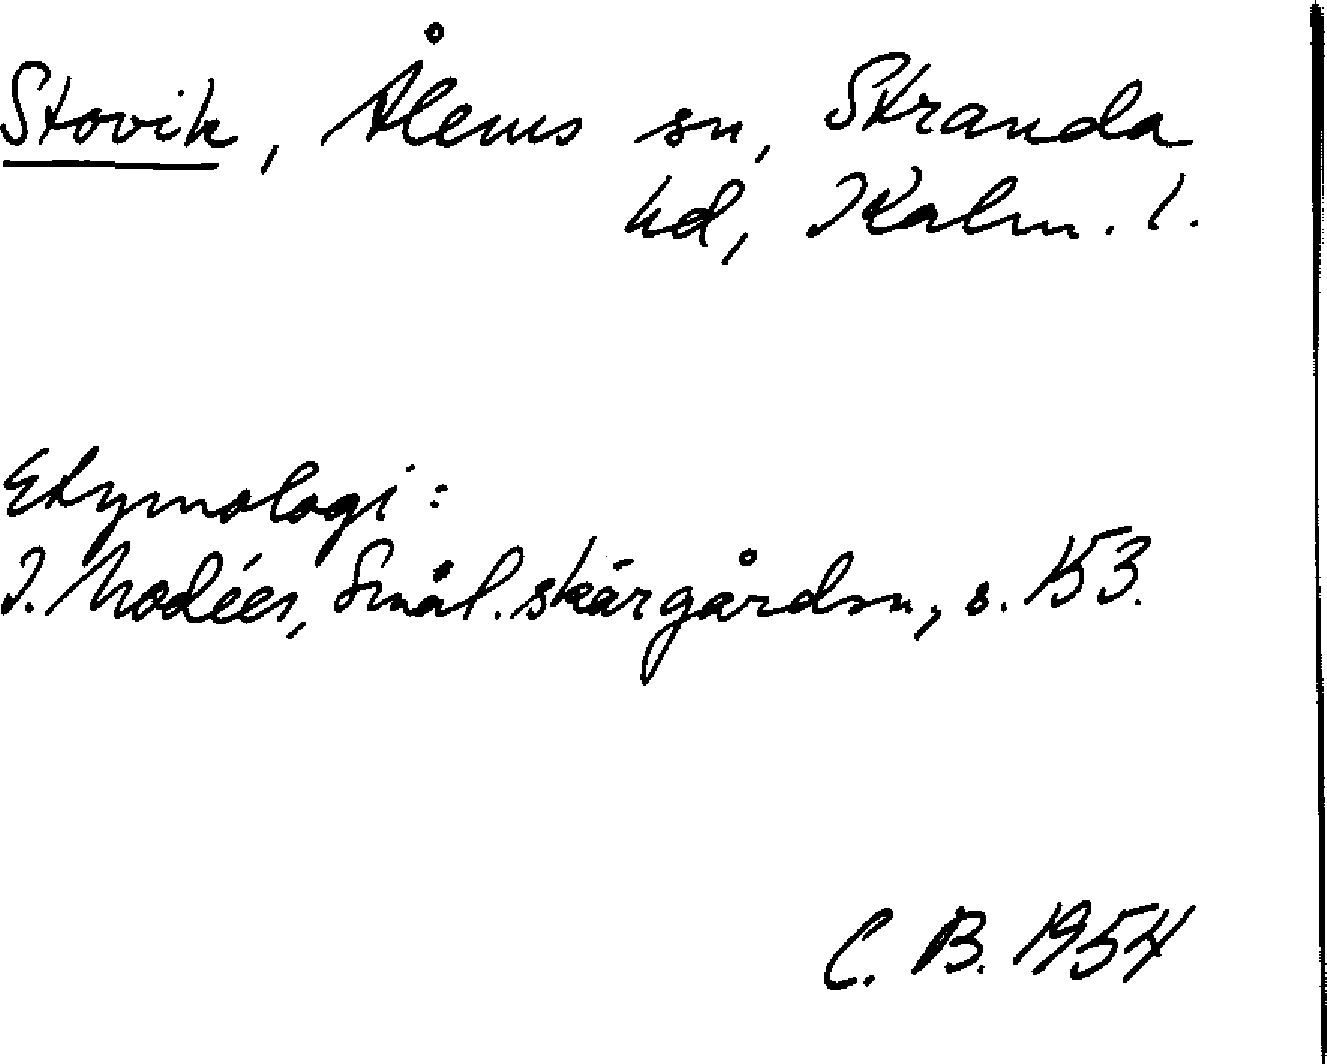 Stovik, Ålems sn, Stranda
hd, Kalm. l.
Etymologi:
I. Modéer, Smål. skärgårdsn, s. 153.
C. B. 1954